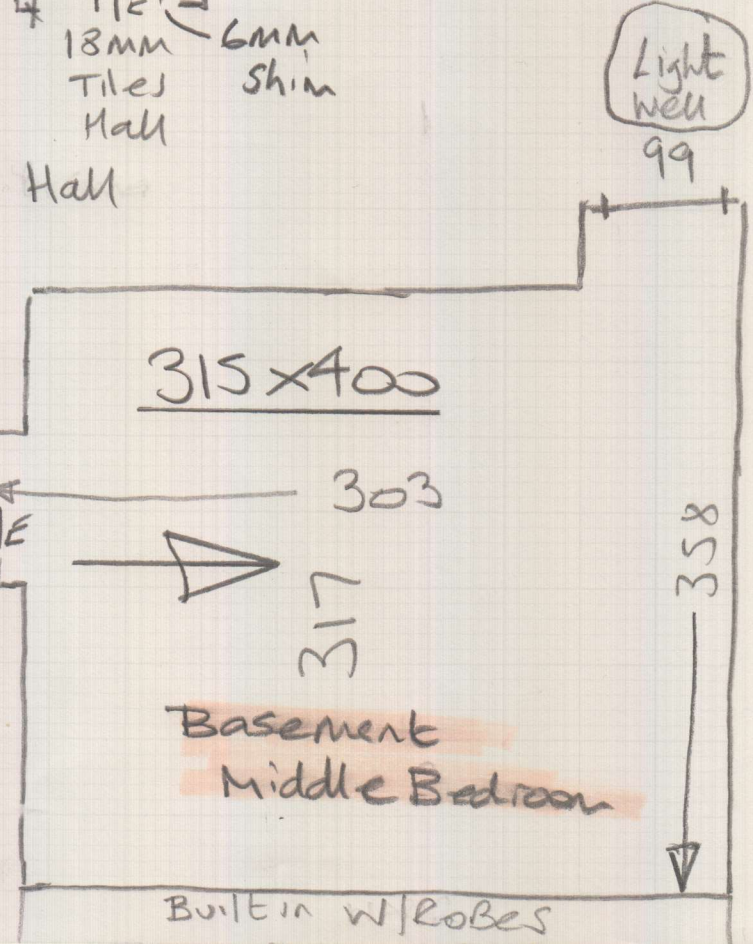 18mm 6mm
Tiles Shim
Hall
Hall
Light
Well
99
315x400
303
317
358
Basement
Middle Bedroom
Built in W/RoBes